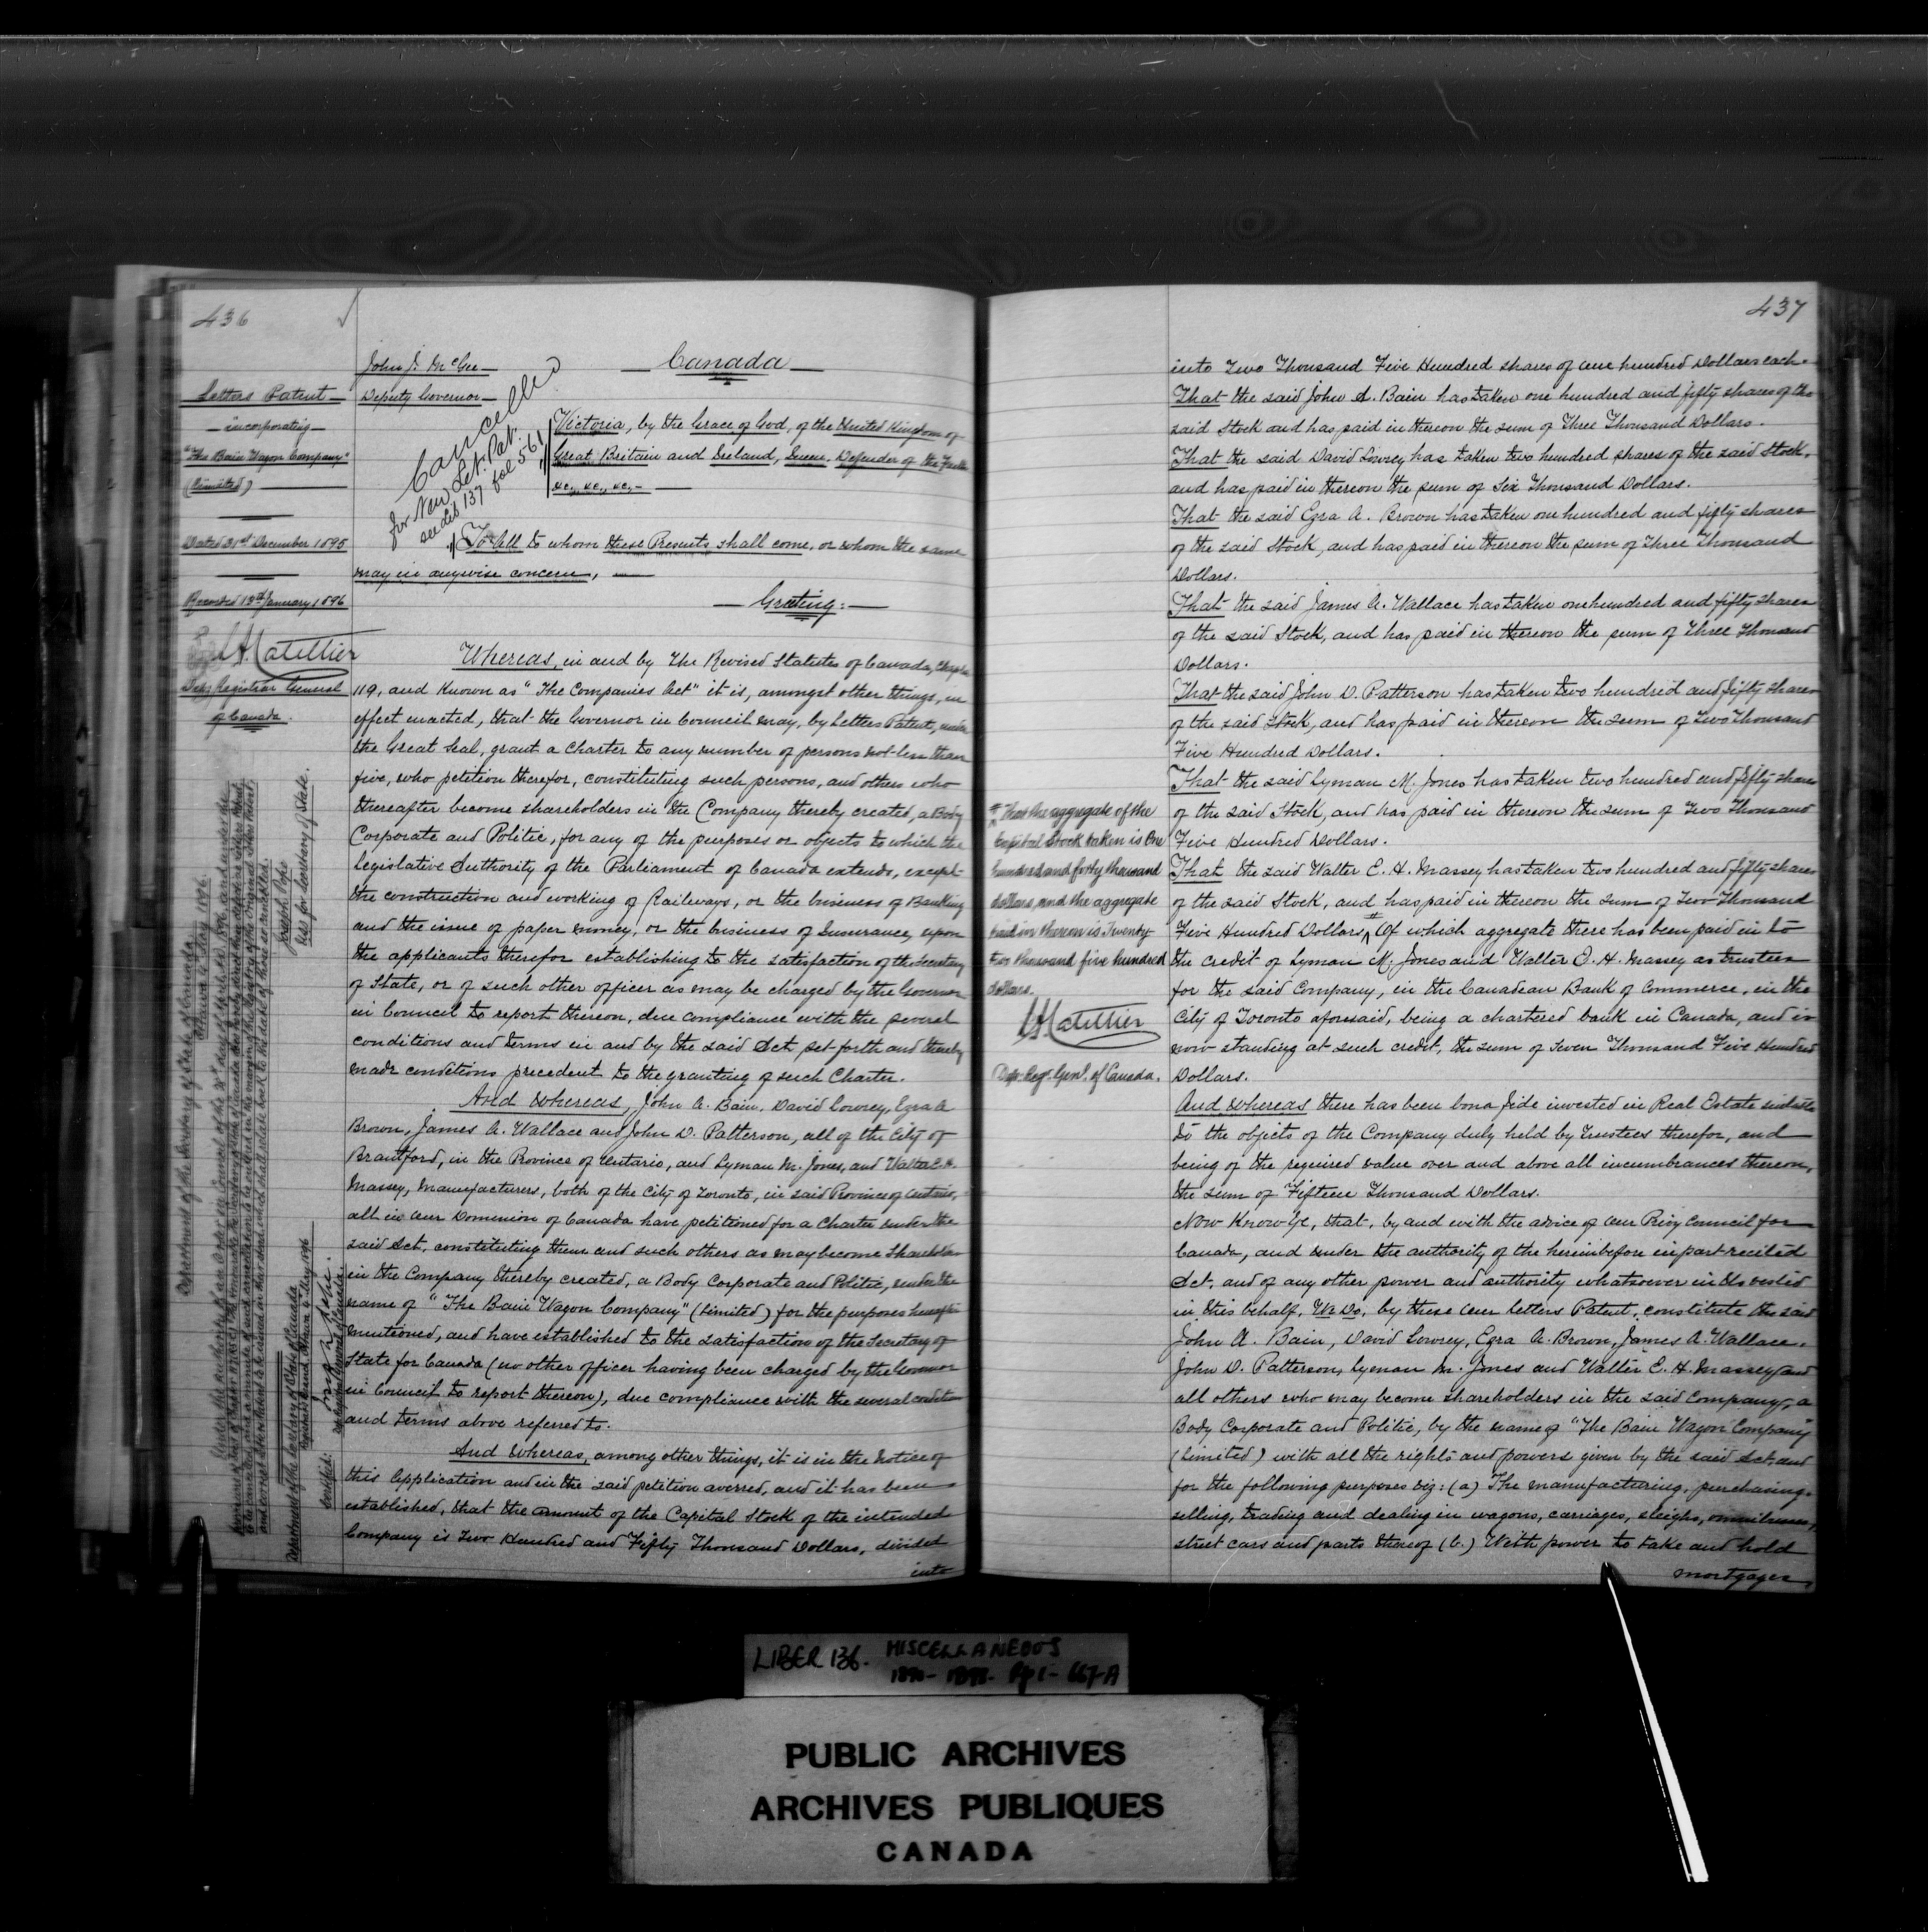 436
John J. McGee
Deputy Governor
Canada
Letters Patent
incorporating
"The Bain Wagon Company"
(Limited)
Dated 31st December 1895
Recorded 13th January 1896
Dep. Registrar General
of Canada.
Cancelled
for New Let. Pat.
see Lib 137 fol 561
Victoria, by the Grace of God, of the United Kingdom of
Great Britain and Ireland, Queen, Defender of the Faith
&c., &c., &c,
To All to whom these Presents shall come, or whom the same
may in anywise concern,
Greeting:
Whereas, in and by The Revised Statutes of Canada, Chapter
119, and Known as "The Companies Act" it is, amongst other things, in
effect enacted, that the Governor in Council may, by Letters Patent, under
the Great Seal, grant a Charter to any number of persons not less than
five, who petition therefor, constituting such persons, and others who
thereafter become shareholders in the Company thereby created, a Body
Corporate and Politic, for any of the purposes or objects to which the
Legislative Authority of the Parliament of Canada extends, except
the construction and working of Railways, or the business of Banking
and the issue of paper money, or the business of Insurance, upon
the applicants therefor establishing to the satisfaction of the Secretary
of State, or of such other officer as may be charged by the Governor
in Council to report thereon, due compliance with the several
conditions and terms in and by the said Act set forth and thereby
made conditions precedent to the granting of such Charter.
And Whereas, John A. Bain, David Lowrey, Ezra A
Brown, James A. Wallace and John D. Patterson, all of the City of
Brantford, in the Province of Ontario, and Lyman M. Jones, and Walter E. H.
Massey, Manufacturers, both of the City of Toronto, in said Province of Ontario,
all in Our Dominion of Canada have petitioned for a Charter under the
said Act, constituting them and such others as may become Shareholders
in the Company thereby created, a Body Corporate and Politic, under the
name of "The Bain Wagon Company" (Limited) for the purposes hereafter
mentioned, and have established to the satisfaction of the Secretary of
State for Canada (no other officer having been charged by the Governor
in Council to report thereon), due compliance with the several conditions
and terms above referred to.
And Whereas, among other things, it is in the Notice of
this Application and in the said petition averred, and it has been
established, that the amount of the Capital Stock of the intended
Company is Two Hundred and Fifty Thousand Dollars, divided
into
Department of the Secretary of State of Canada
Joseph Pope
Dep. for Secretary of State.
Department of the Secretary of State of Canada
Certified:
437
into Two Thousand Five Hundred shares of One hundred Dollars each.
That the said John A. Bain has taken one hundred and fifty shares of the
said Stock and has paid in thereon the sum of Three Thousand Dollars.
That the said David Lowrey has taken two hundred shares of the said Stock,
and has paid in thereon the sum of Six Thousand Dollars.
That the said Ezra A. Brown has taken one hundred and fifty shares
of the said Stock, and has paid in thereon the sum of Three Thousand
Dollars.
That the said James A. Wallace has taken one hundred and fifty shares
of the said Stock, and has paid in thereon the sum of Three Thousand
Dollars.
That the said John D. Patterson has taken two hundred and fifty shares
of the said Stock, and has paid in thereon the sum of Two Thousand
Five Hundred Dollars.
That the said Lyman M. Jones has taken two hundred and fifty shares
of the said Stock, and has paid in thereon the sum of Two Thousand
Five Hundred Dollars.
That the said Walter E. H. Massey has taken two hundred and fifty shares
of the said Stock, and has paid in thereon the sum of Two Thousand
Five Hundred Dollars # Of which aggregate there has been paid in to
the credit of Lyman M. Jones and Walter E. H. Massey as trustees
for the said Company, in the Canadian Bank of Commerce, in the
City of Toronto aforesaid, being a chartered bank in Canada, and is
now standing at such credit, the sum of Seven Thousand Five Hundred
Dollars.
# That the aggregate of the
Capital Stock taken is One
hundred and forty thousand
dollars, and the aggregate
paid in thereon is Twenty
two thousand five hundred
dollars.
Dep. Regr. Genl. of Canada.
And Whereas there has been bona fide invested in Real Estate suitable
to the objects of the Company duly held by Trustees therefor, and
being of the required value over and above all incumbrances thereon,
the sum of Fifteen Thousand Dollars.
Now Know Ye, that, by and with the advice of Our Privy Council for
Canada, and under the authority of the hereinbefore in part recited
Act, and of any other power and authority whatsoever in Us vested
in this behalf, We Do, by these Our Letters Patent, constitute the said
John A. Bain, David Lowrey, Ezra A. Brown, James A. Wallace,
John D. Patterson, Lyman M. Jones and Walter E. H. Massey and
all others who may become shareholders in the said Company, a
Body Corporate and Politic, by the name of "The Bain Wagon Company"
(Limited) with all the rights and powers given by the said Act and
for the following purposes viz: (a) The manufacturing, purchasing,
selling, trading and dealing in wagons, carriages, sleighs, omnibuses,
street cars and parts thereof (b.) With power to take and hold
mortgages
LIBER 136. MISCELLANEOUS
PUBLIC ARCHIVES
ARCHIVES PUBLIQUES
CANADA